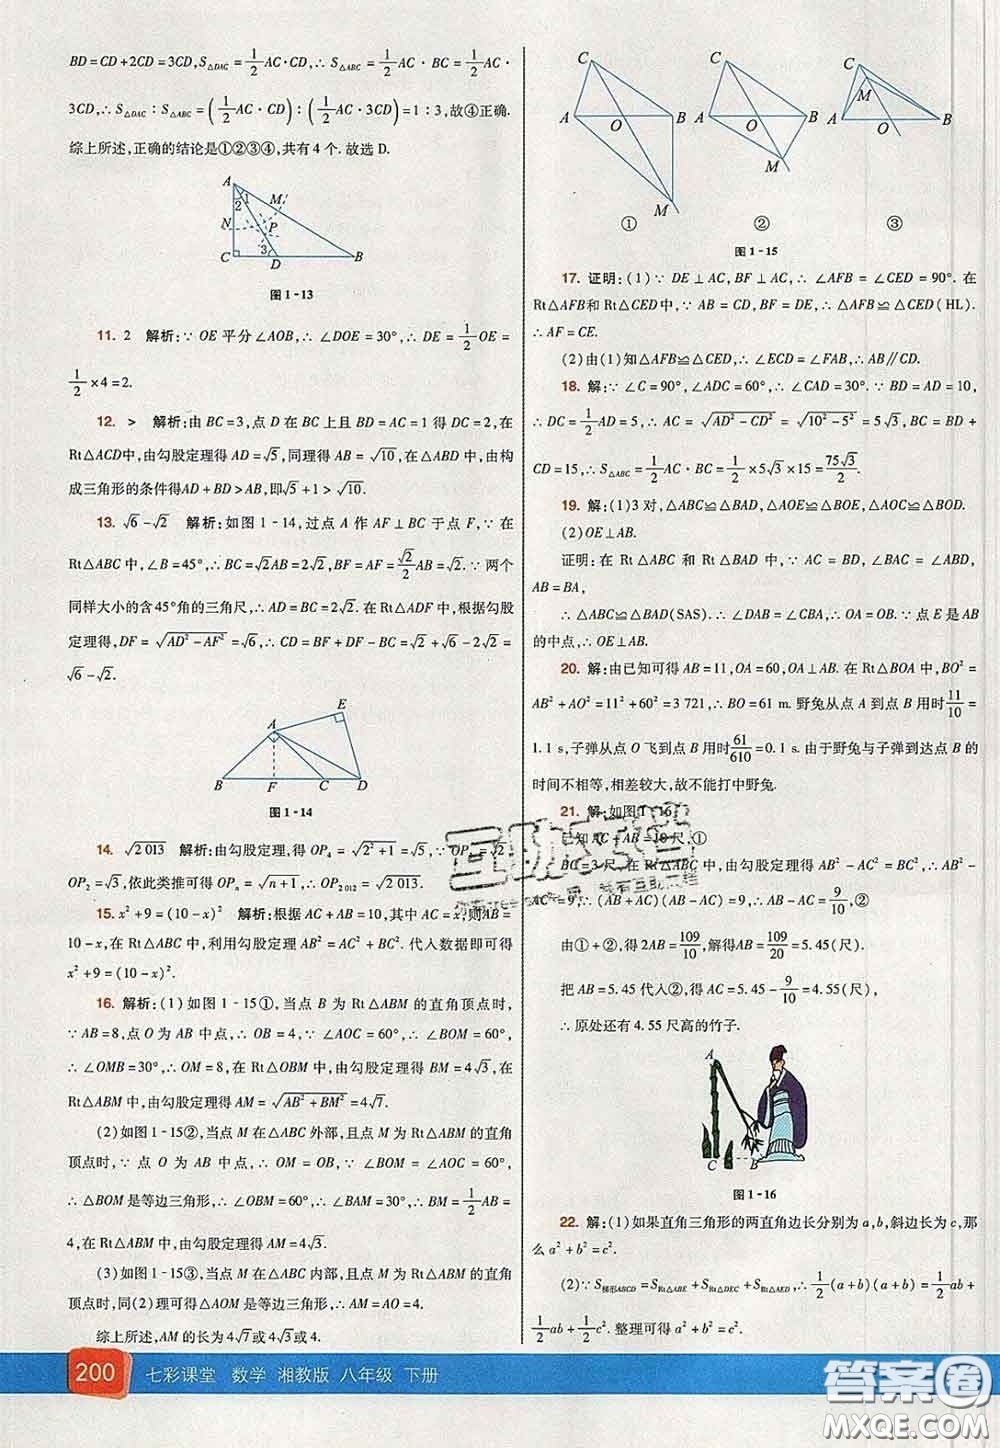 BD=CD+2CD=3CD,S△DAC=1/2AC·CD,∴S△ABC=1/2AC·BC=1/2AC·
3CD,∴S△DAC:S△ABC=(1/2AC·CD):(1/2AC·3CD)=1:3,故④正确.
综上所述,正确的结论是①②③④,共有4个.故选D.
A
1
2
M
N
P
3
C
D
B
图1-13
11. 2 解析:∵OE平分∠AOB,∴∠DOE=30°,∴DE=1/2OE=
1/2×4=2.
12. > 解析:由BC=3,点D在BC上且BD=AC=1得CD=2,在
Rt△ACD中,由勾股定理得AD=√5,同理可得AB=√10,在△ABD中,由
构成三角形的条件得AD+BD>AB,即√5+1>√10.
13. √6-√2 解析:如图1-14,过点A作AF⊥BC于点F,∵在
Rt△ABC中,∠B=45°,∴BC=√2AB=2√2,BF=AF=√2/2AB=√2,∵两个
同样大小的含45°角的三角尺,∴AD=BC=2√2.在Rt△ADF中,根据勾股
定理得,DF=√(AD²-AF²)=√6,∴CD=BF+DF-BC=√2+√6-2√2=
√6-√2.
E
A
B
F
C
D
图1-14
14. √2 013 解析:由勾股定理,得OP₄=√(2²+1)=√5,∵OP₁=√2
OP₂=√3,依此类推可得OPₙ=√(n+1),∴OP₂₀₁₂=√2 013.
15. x²+9=(10-x)² 解析:根据AC+AB=10,其中AC=x,则AB=
10-x,在Rt△ABC中,利用勾股定理AB²=AC²+BC².代入数据即可得
x²+9=(10-x)².
16. 解析:(1)如图1-15①,当点B为Rt△ABM的直角顶点时,
∵AB=8,点O为AB中点,∴OB=4,∵∠AOC=60°,∴∠BOM=60°,
∴∠OMB=30°,∴OM=8,在Rt△OBM中,由勾股定理得BM=4√3,在
Rt△ABM中,由勾股定理得AM=√(AB²+BM²)=4√7.
(2)如图1-15②,当点M在△ABC外部,且点M为Rt△ABM的直角
顶点时,∵点O为AB中点,∴OM=OB,∵∠BOM=∠AOC=60°,
∴△BOM是等边三角形,∴∠OBM=60°,∴∠BAM=30°,∴BM=1/2AB=
4,在Rt△ABM中,由勾股定理得AM=4√3.
(3)如图1-15③,当点M在△ABC内部,且点M为Rt△ABM的直角
顶点时,同(2)理可得△AOM是等边三角形,∴AM=AO=4.
综上所述,AM的长为4√7或4√3或4.
C
A
O
B
M
①
C
A
O
B
M
②
C
M
A
O
B
③
图1-15
17. 证明:(1)∵DE⊥AC,BF⊥AC,∴∠AFB=∠CED=90°.在
Rt△AFB和Rt△CED中,∵AB=CD,BF=DE,∴△AFB≌△CED(HL).
∴AF=CE.
(2)由(1)知△AFB≌△CED,∴∠ECD=∠FAB,∴AB∥CD.
18. 解:∵∠C=90°,∠ADC=60°,∴∠CAD=30°.∵BD=AD=10,
∴DC=1/2AD=5,∴AC=√(AD²-CD²)=√(10²-5²)=5√3,BC=BD+
CD=15,∴S△ABC=1/2AC·BC=1/2×5√3×15=75√3/2.
19. 解:(1)3对,△ABC≌△BAD,△AOE≌△BOE,△AOC≌△BOD.
(2)OE⊥AB.
证明:在Rt△ABC和Rt△BAD中,∵AC=BD,∠BAC=∠ABD,
AB=BA,
∴△ABC≌△BAD(SAS).∴∠DAB=∠CBA,∴OA=OB.∵点E是AB
的中点,∴OE⊥AB.
20. 解:由已知可得AB=11,OA=60,OA⊥AB.在Rt△BOA中,BO²=
AB²+AO²=11²+60²=3 721,∴BO=61 m.野兔从点A到点B用时11/10=
1.1 s,子弹从点O飞到点B用时61/610=0.1 s.由于野兔与子弹到达点B的
时间不相等,相差较大,故不能打中野兔.
21. 解:如图1-16
已知AC+AB=10尺,①
BC=3尺.在Rt△ABC中,由勾股定理得AB²-AC²=BC²,∴AB²-
AC²=9,∴(AB+AC)(AB-AC)=9,∴AB-AC=9/10,②
由①+②,得2AB=109/10,解得AB=109/20=5.45(尺).
把AB=5.45代入②,得AC=5.45-9/10=4.55(尺),
∴原处还有4.55尺高的竹子.
A
C
B
图1-16
22. 解:(1)如果直角三角形的两直角边长分别为a,b,斜边长为c,那
么a²+b²=c².
(2)∵S梯形ABCD=SRt△ABE+SRt△DEC+SRt△AED,∴1/2(a+b)(a+b)=1/2ab+
1/2ab+1/2c².整理可得a²+b²=c².
200 七彩课堂 数学 湘教版 八年级 下册
答案圈
MXQE.COM